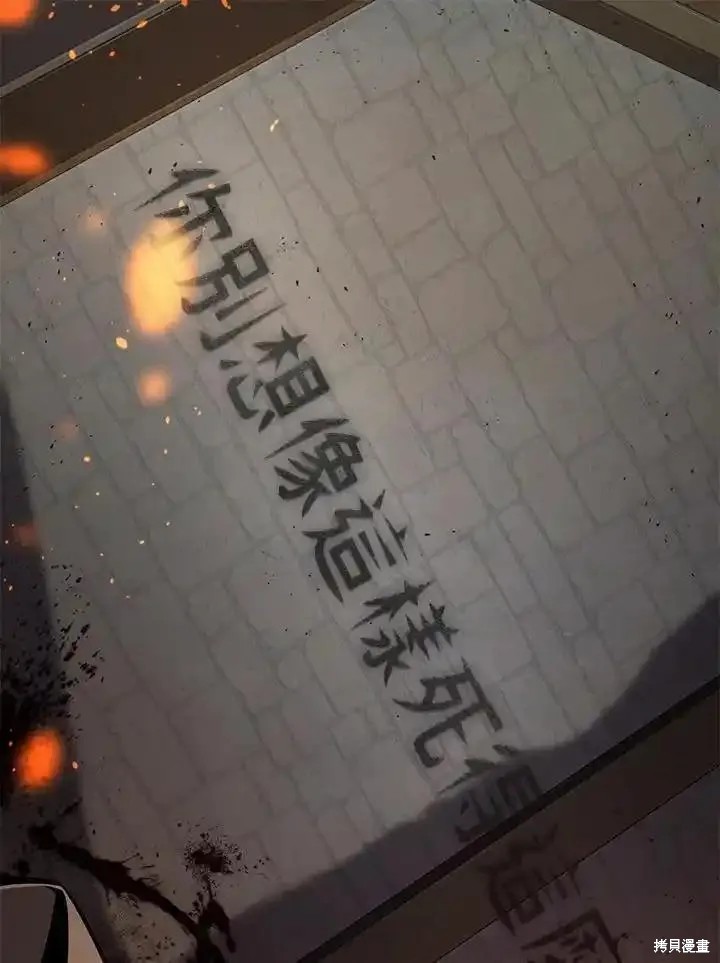 你別想像這樣死得這麼
拷貝漫畫